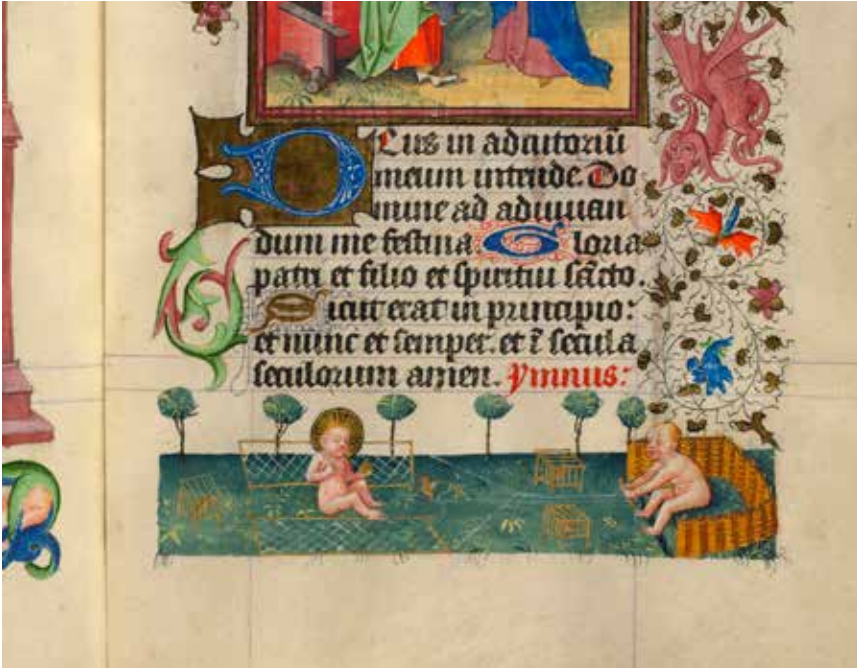 Deus in adiutoriū
meum intende. Do
mine ad adiuuan
dum me festina. Gloria
patri et filio et spiritui sc̄to.
Sicut erat in principio:
et nunc et semper. et ī secula
seculorum amen. Ymnus: